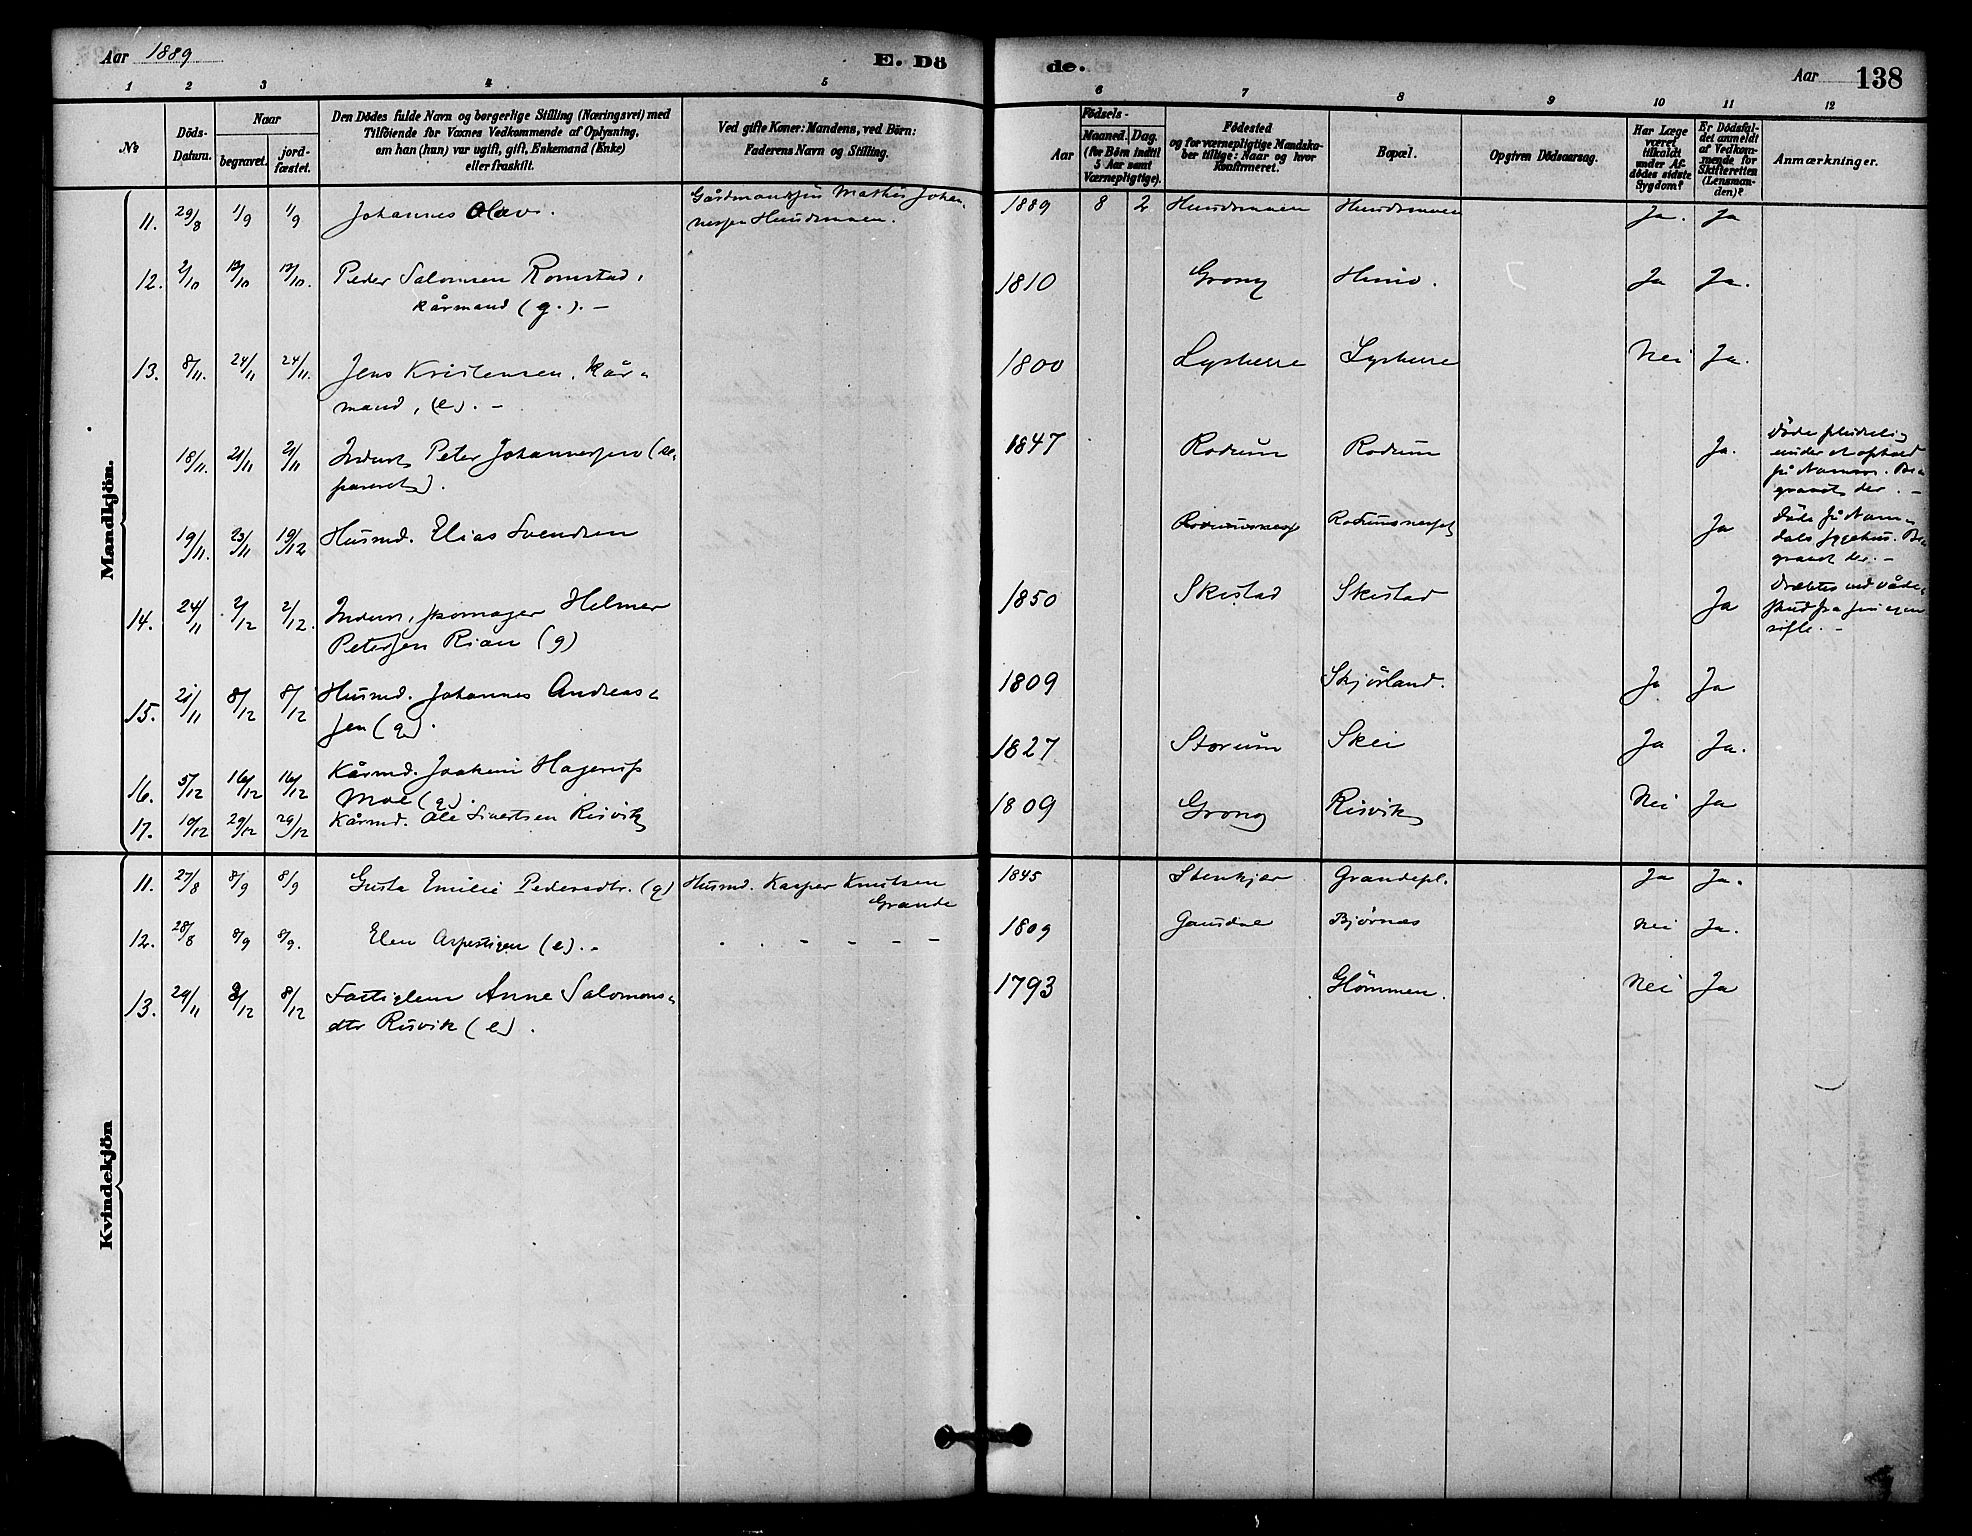 Aar 1889
E. Dö
de.
Aar 138
1 2 3 4 5 6 7 8 9 10 11 12
No
Döds-
Datum.
Naar
begravet.
jord-
fæstet.
Den Dödes fulde Navn og borgerlige Stilling (Næringsvei) med
Tilföiende for Voxnes Vedkommende af Oplysning,
om han (hun) var ugift, gift, Enkemand (Enke)
eller fraskilt.
Ved gifte Koner: Mandens, ved Börn:
Faderens Navn og Stilling.
Födsels-
Aar
Maaned.
Dag.
(for Börn indtil
5 Aar samt
Værnepligtige).
Födested
og for værnepligtige Mandska-
ber tillige: Naar og hvor
konfirmeret.
Bopæl.
Opgiven Dödsaarsag.
Har Læge
været
tilkaldt
under Af-
dödes sidste
Sygdom?
Er Dödsfal-
det anmeldt
af Vedkom-
mende for
Skifteretten
(Lensman-
den)?
Anmærkninger.
Mandkjön.
11. 29/8 1/9 1/9 Johannes Olav. Gårdmandsøn Mathis Johan-
nessen Hundsmoen. 1889 8 2 Hundsmoen Hundsmoen Ja. Ja
12. 2/10 13/10 13/10. Peder Salomsen Romstad, 1810 Grong Ja Ja.
kårmand (g.). —
13. 8/11. 24/11 24/11. Jens Kristensen, kår- 1800 Nei Ja.
mand, (e). —
18/11. 21/11 21/11 Inderst Peter Johannessen (se- 1847 Rodum Rodum Ja. Døde pludselig
pareret). under et ophold
på Namsos. Be-
gravet der. —
19/11. 23/11 19/12 Husmd. Elias Svendsen Rodumsnesset Ja Døde på Nam-
dals sygehus. Be-
gravet der. —
14. 24/11 2/12 2/12. Inders, skomager Helmer 1850 Skistad Skistad Ja Dræbtes ved våde-
Petersen Rian (g) skud fra sin egen
rifle. —
15. 21/11 8/12 8/12 Husmd. Johannes Andreas- 1809 Skjörland. Ja Ja
sen (g).
16. 5/12 16/12 16/12 Kårmd. Joakim Hagerup 1827 Storum Skei Ja Ja.
Moe (g).
17. 10/12 29/12 29/12 Kårmd. Ole Sivertsen Risvik 1809 Grong Risvik Nei Ja
Kvindekjön
11. 27/8 8/9 8/9 Gusta Emilie Pedersdtr. (g) Husmd. Kasper Knutsen 1845 Stenkjær Grandepl. Ja Ja.
Grande
12. 28/8 8/9 8/9. Elen Aspestigen (e). - 1809 Gausdal Bjørnes Nei Ja.
13. 29/11 8/12 8/12 Fattiglem Anne Salomons- 1793 Glömmen. Nei Ja
dtr Risvik (e).